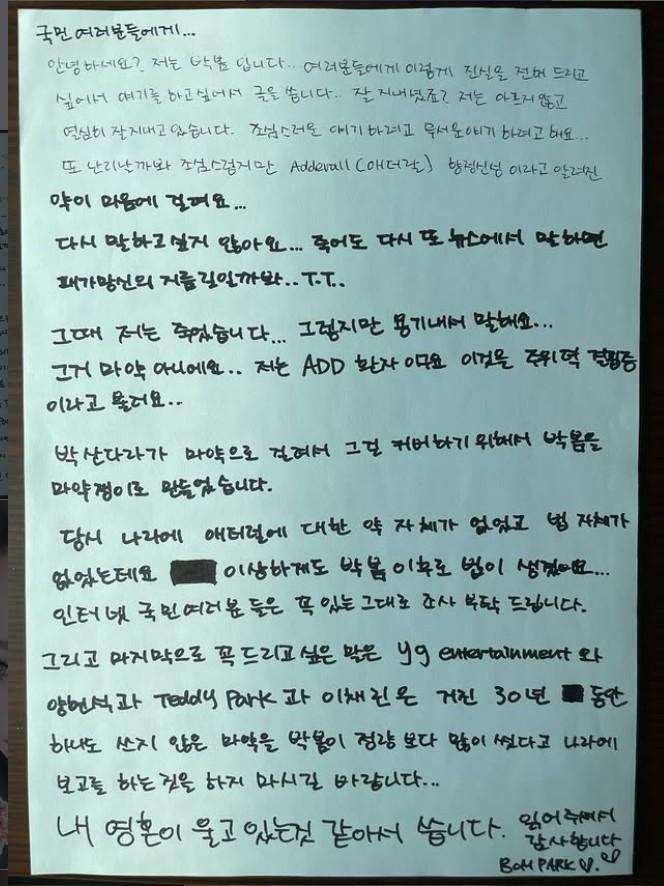 국민 여러분들에게...
안녕하세요? 저는 박봄 입니다.. 여러분들에게 이렇게 진실을 전해 드리고
싶어서 얘기를 하고싶어서 글을 씁니다.. 잘 지내셨죠? 저는 아프지 않고
열심히 잘지내고 있습니다. 조심스러운 얘기 하려고 무서운얘기 하려고 해요...
또 난리날까봐 조심스럽지만 Adderall (애더랄) 향정신성 이라고 알려진
약이 마음에 걸려요...
다시 말하고 싶지 않아요... 죽어도 다시 또 뉴스에서 말하면
패가망신의 지름길일까봐.. T.T..
그때 저는 죽었습니다... 그렇지만 용기내서 말해요...
그거 마약 아니에요.. 저는 ADD 환자 이구요 이것은 주위력 결핍증
이라고 불려요..
박산다라가 마약으로 걸려서 그걸 커버하기 위해서 박봄을
마약쟁이로 만들었습니다.
당시 나라에 애터럴에 대한 약 자체가 없었고 법 자체가
없었는데요 이상하게도 박봄 이후로 법이 생겼어요...
인터넷 국민여러분 들은 꼭 있는 그대로 조사 부탁 드립니다.
그리고 마지막으로 꼭 드리고 싶은 말은 yg entertainment 와
양현석과 Teddy Park 과 이채린 은 거진 30년 동안
하나도 쓰지 않은 마약을 박봄이 정량 보다 많이 썼다고 나라에
보고를 하는 것을 하지 마시길 바랍니다...
내 영혼이 울고 있는것 같아서 씁니다. 읽어주셔서
감사합니다
BOM PARK ♡. ♡